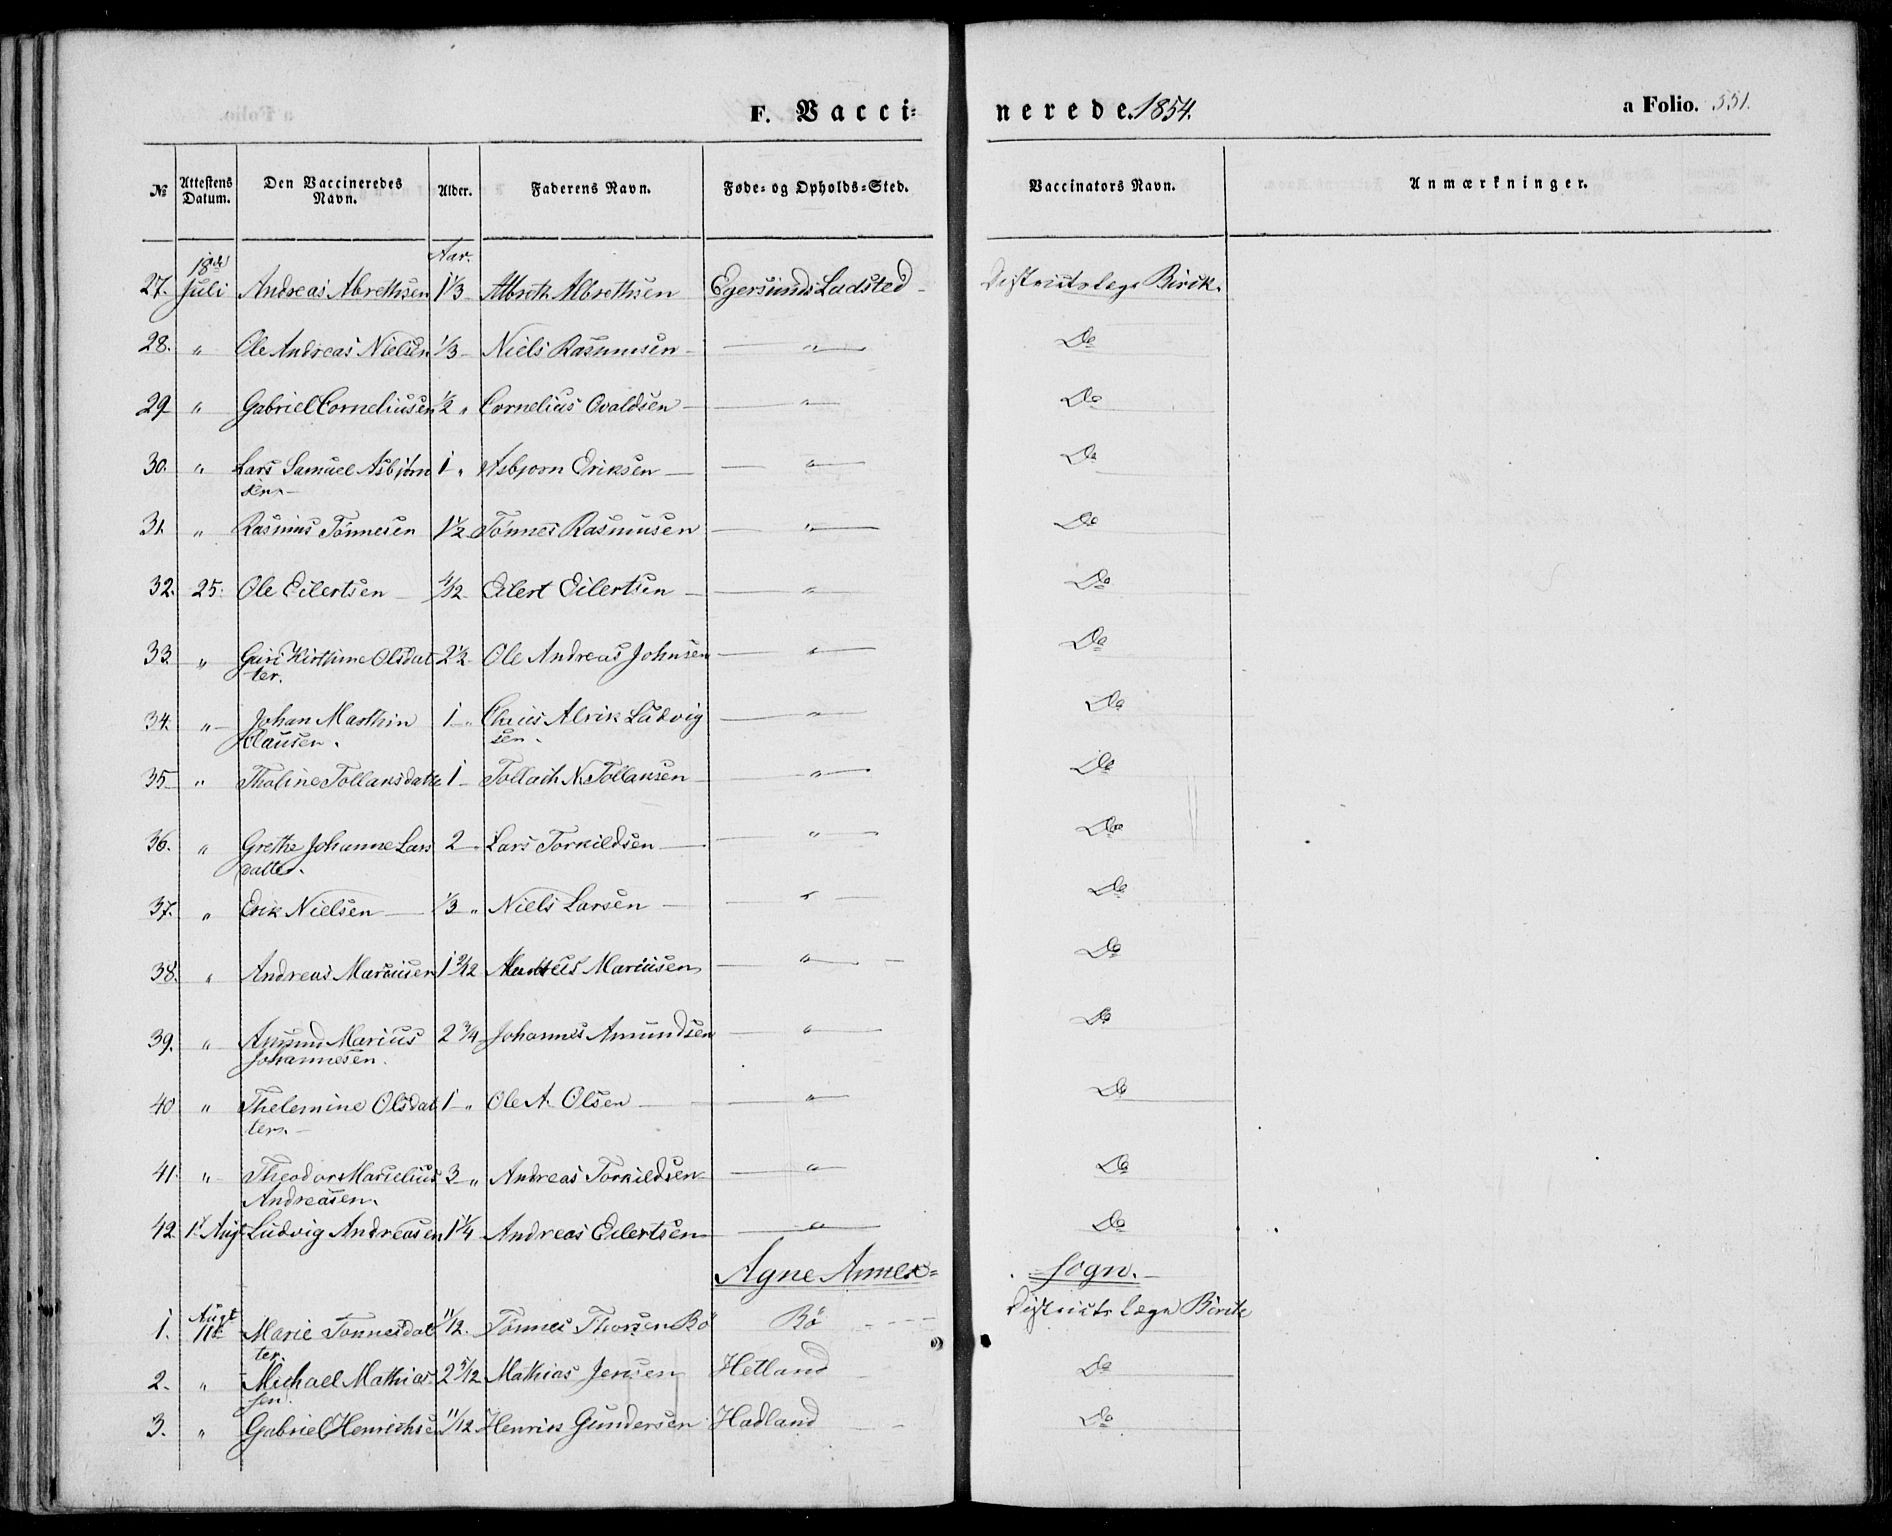 F. Vaccinerede. 1854. a Folio. 551.
№ Attestens Datum. Den Vaccineredes Navn. Alder. Faderens Navn. Føde- og Opholds-Sted. Vaccinators Navn. Anmærkninger.
Aar.
27. 18de Juli Andreas Abrethsen 1 1/3 Albreth Albrethsen Egersunds Ladsted Districtslæge Birck.
28. " Ole Andreas Nielsen 1/3 Niels Rasmusen " Do
29 " Gabriel Corneliusen 1/2 " Cornelius Ovaldsen " Do
30. " Lars Samuel Asbjørn 1 " Asbjorn Eriksen " Do
sen
31. " Rasmus Tønnesen 1 1/2 Tønnes Rasmusen " Do
32. 25. Ole Eilertsen Eilert Eilertsen " Do
33. " Guri Kirstine Olsdat 2 1/2 Ole Andreas Johnsen " Do
ter.
34. " Johan Marthin 1 " Alrik Ludvig " Do
Clausen. sen.
35 " Tholine Tollaksdatte 1 Tollach N. Tollaksen " Do
36. " Grethe Johanne Lars 2 " Lars Torkildsen " Do
datter.
37. " Erik Nielsen 1/3 " Niels Larsen " Do
38. " Andreas Mariusen Mariusen " Do
39. " Amund Marius 2 3/4 Johannes Amundsen " Do
Johannesen.
40 " Thelemine Olsdat 1 " Ole A. Olsen " Do
ter.
41. " Theodor Marselius 3 " Andreas Torkildsen " Do
Andreasen.
42 1 Augt Ludvig Andreasen 1 1/4 Andreas Eilertsen " Do
Agne Annex= Sogn.
1. Augt 11te Marie Tønnesdat 11/12. Tønnes Thorsen Bø Bø Districtslæge Birck
ter.
2. " Michael Mathias 2 5/12 Mathias Jensen Hetland Do
sen.
3. " Gabriel Henrichse 11/12 Henrik Gundersen Hadland Do